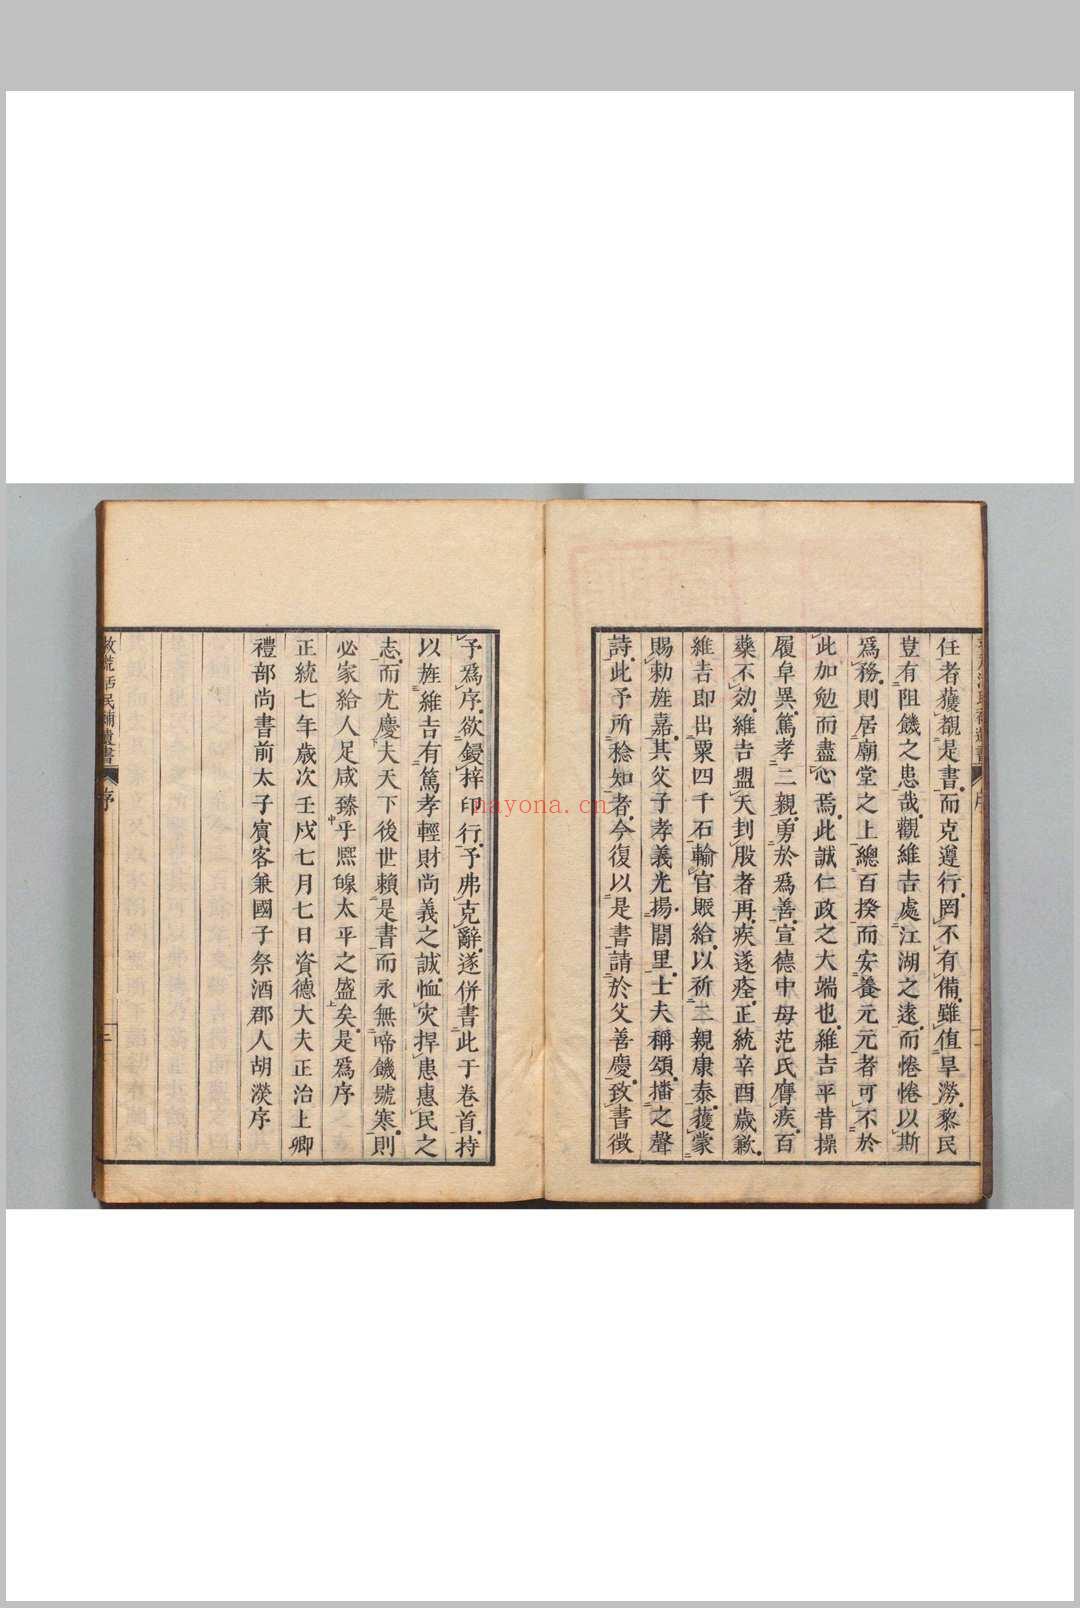 任者獲覩是書而克遵行罔不有備雖值旱澇黎民
豈有阻饑之患哉觀維吉處江湖之遠而惓惓以斯
爲務則居廟堂之上總百揆而安養元元者可不於
此加勉而盡心焉此誠仁政之大端也維吉平昔操
履卓異篤孝二親勇於爲善宣德中母范氏膺疾百
藥不効維吉盟天刲股者再疾遂痊正統辛酉歲歉
維吉即出粟四千石輸官賑給以祈二親康泰獲蒙
賜勅旌嘉其父子孝義光揚閭里士夫稱頌播之聲
詩此予所稔知者今復以是書請於父善慶致書徵
予爲序欲鋟梓印行予弗克辭遂併書此于卷首持
以旌維吉有篤孝輕財尚義之誠恤灾捍患惠民之
志而尤慶夫天下後世賴是書而永無啼饑號寒則
必家給人足咸臻乎熈皞太平之盛矣是爲序
正統七年歲次壬戍七月七日資德大夫正治上卿
禮部尚書前太子賔客兼國子祭酒郡人胡濙序
救荒活民補遺書
序
二
nayona.cn